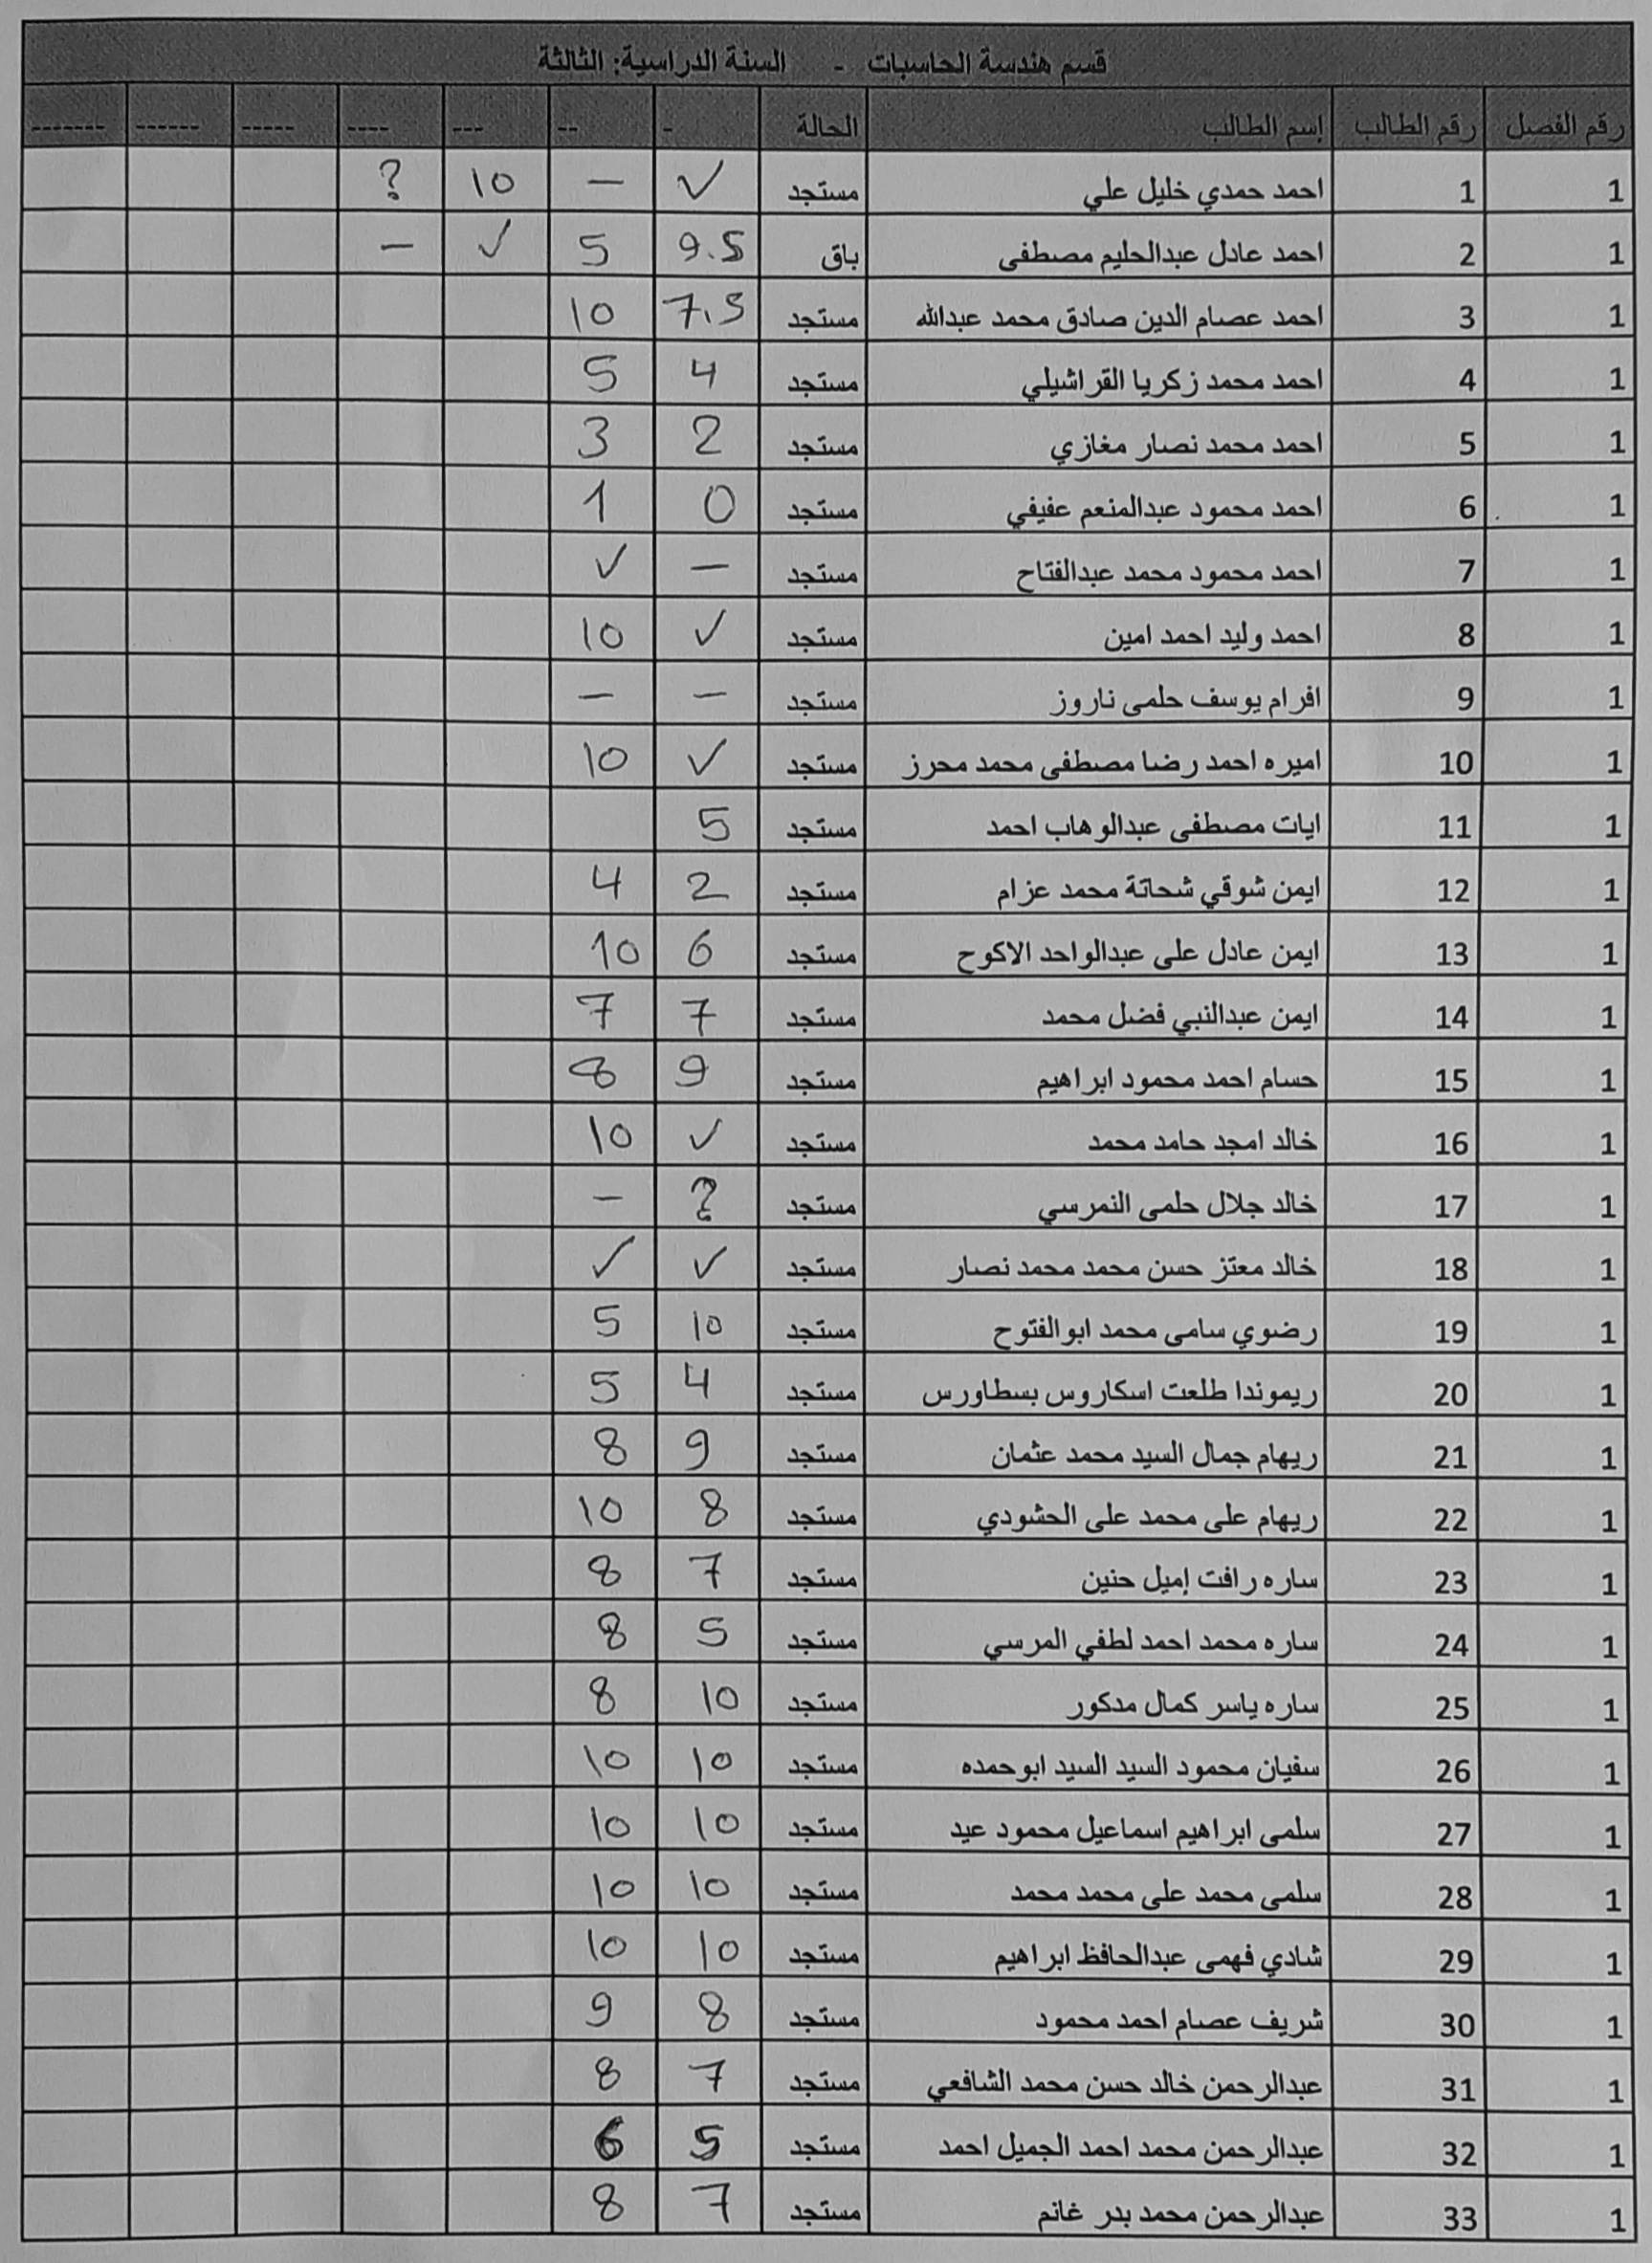 قسم هندسة الحاسبات - السنة الدراسية: الثالثة
رقم الفصل رقم الطالب إسم الطالب الحالة - -- --- ---- ----- ------ -------
1 1 احمد حمدي خليل علي مستجد ✓ — 10 ?
1 2 احمد عادل عبدالحليم مصطفى باق 9.5 5 ✓ —
1 3 احمد عصام الدين صادق محمد عبدالله مستجد 7.5 10
1 4 احمد محمد زكريا القراشيلي مستجد 4 5
1 5 احمد محمد نصار مغازي مستجد 2 3
1 6 احمد محمود عبدالمنعم عفيفي مستجد 0 1
1 7 احمد محمود محمد عبدالفتاح مستجد — ✓
1 8 احمد وليد احمد امين مستجد ✓ 10
1 9 افرام يوسف حلمى ناروز مستجد — —
1 10 اميره احمد رضا مصطفى محمد محرز مستجد ✓ 10
1 11 ايات مصطفى عبدالوهاب احمد مستجد 5
1 12 ايمن شوقي شحاتة محمد عزام مستجد 2 4
1 13 ايمن عادل على عبدالواحد الاكوح مستجد 6 10
1 14 ايمن عبدالنبي فضل محمد مستجد 7 7
1 15 حسام احمد محمود ابراهيم مستجد 9 8
1 16 خالد امجد حامد محمد مستجد ✓ 10
1 17 خالد جلال حلمى النمرسي مستجد ? —
1 18 خالد معتز حسن محمد محمد نصار مستجد ✓ ✓
1 19 رضوي سامى محمد ابوالفتوح مستجد 10 5
1 20 ريموندا طلعت اسكاروس بسطاورس مستجد 4 5
1 21 ريهام جمال السيد محمد عثمان مستجد 9 8
1 22 ريهام على محمد على الحشودي مستجد 8 10
1 23 ساره رافت إميل حنين مستجد 7 8
1 24 ساره محمد احمد لطفي المرسي مستجد 5 8
1 25 ساره ياسر كمال مدكور مستجد 10 8
1 26 سفيان محمود السيد السيد ابوحمده مستجد 10 10
1 27 سلمى ابراهيم اسماعيل محمود عيد مستجد 10 10
1 28 سلمى محمد على محمد محمد مستجد 10 10
1 29 شادي فهمى عبدالحافظ ابراهيم مستجد 10 10
1 30 شريف عصام احمد محمود مستجد 8 9
1 31 عبدالرحمن خالد حسن محمد الشافعي مستجد 7 8
1 32 عبدالرحمن محمد احمد الجميل احمد مستجد 5 6
1 33 عبدالرحمن محمد بدر غانم مستجد 7 8